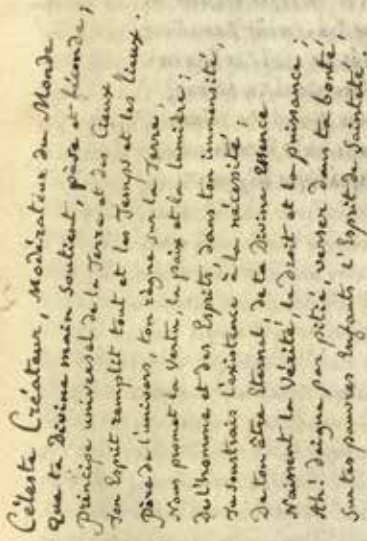 Céleste Créateur, Modérateur du Monde
Que ta Divine main Soutient, père et féconde ;
Principe universel de la Terre et des Cieux,
Ton Esprit remplit tout et les Temps et les lieux.
Père de l'univers, ton règne sur la Terre,
Nous promet la Vertu, la paix et la lumière ;
De l'homme et des Esprits dans ton immensité,
Tu Soustrais l'existence à la nécessité ;
De ton être Eternel, de ta Divine Essence
Naissent la Vérité, le Droit et la puissance ;
Ah ! daigne par pitié, verser dans ta bonté,
Sur tes pauvres Enfants l'Esprit de Sainteté.